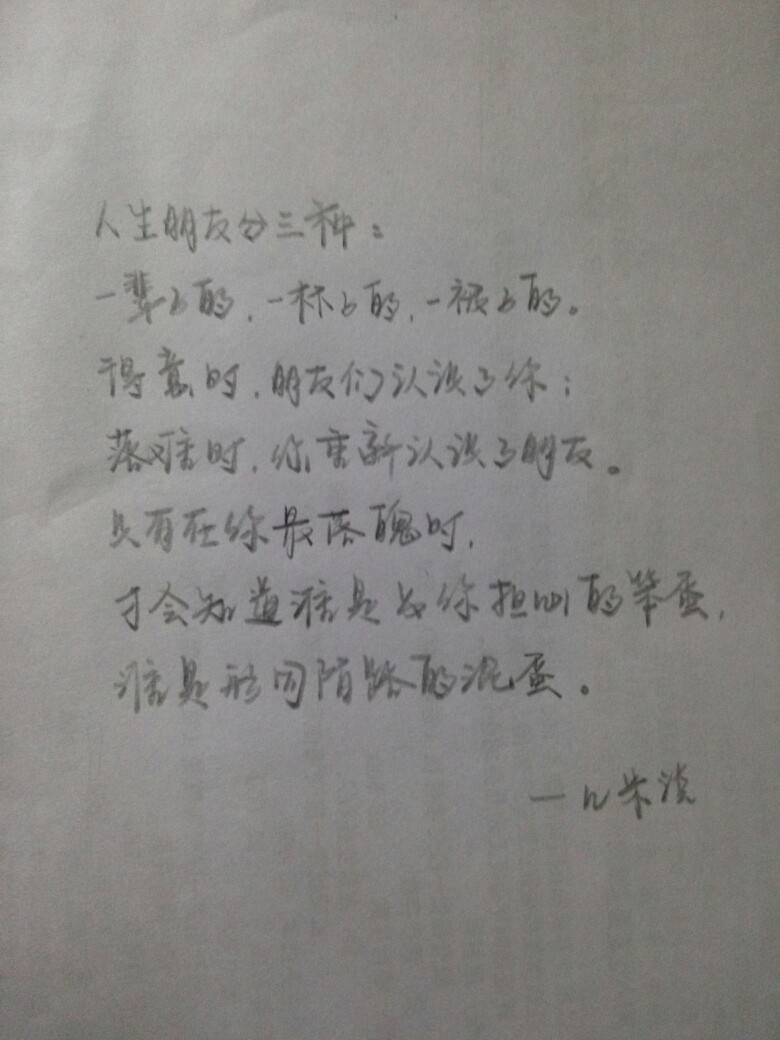 人生朋友分三种：
一辈子的，一杯子的，一被子的。
得意时，朋友们认识了你；
落难时，你重新认识了朋友。
只有在你最落魄时，
才会知道谁是为你担心的笨蛋，
谁是形同陌路的混蛋。